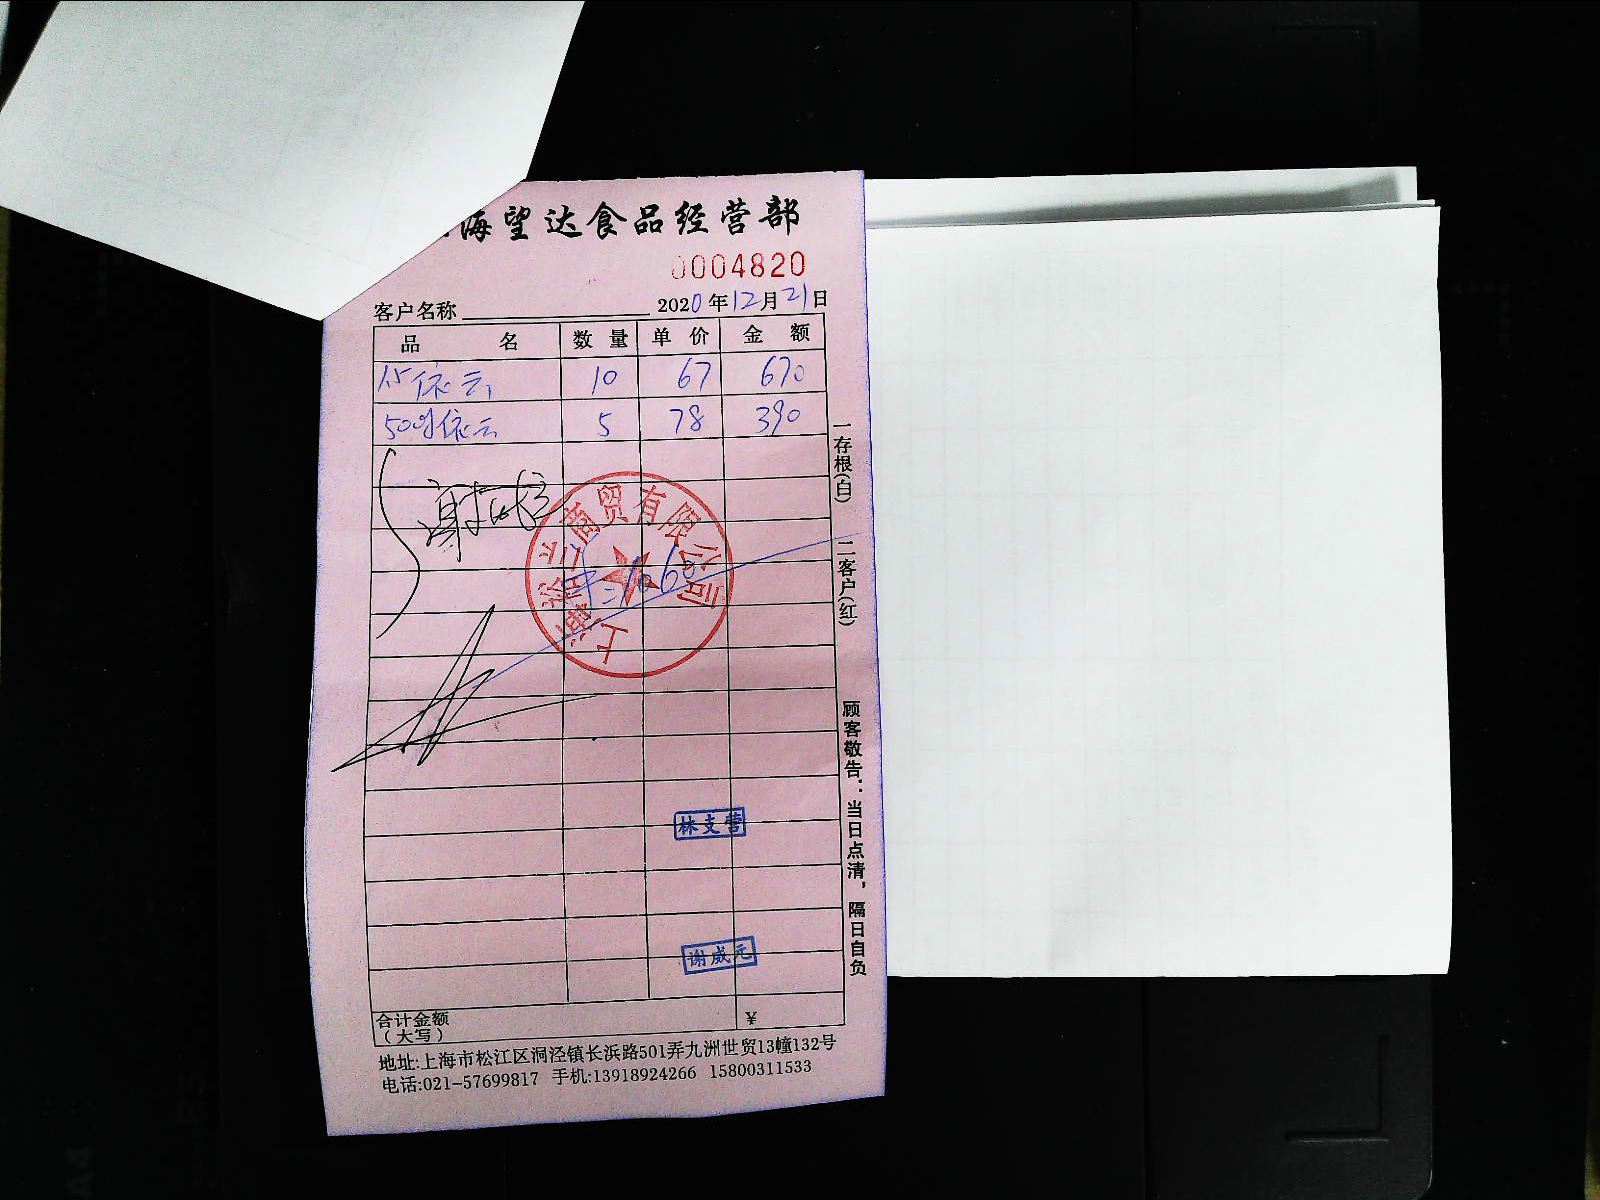 海望达食品经营部
0004820
客户名称 2020年12月21日
品名 数量 单价 金额
1.5依云 10 67 670
500依云 5 78 390
商贸有限公司
1060
林支营
谢威元
合计金额
(大写) ¥
地址:上海市松江区洞泾镇长浜路501弄九洲世贸13幢132号
电话:021-57699817 手机:13918924266 15800311533
一存根(白) 二客户(红) 顾客敬告:当日点清,隔日自负